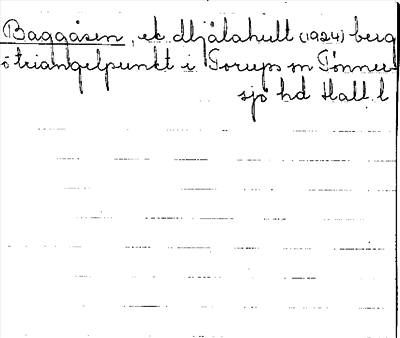 Baggåsen, ek. Mjälahult (1924) berg
o triangelpunkt i Torups sn Tönner-
sjö hd Hall. l